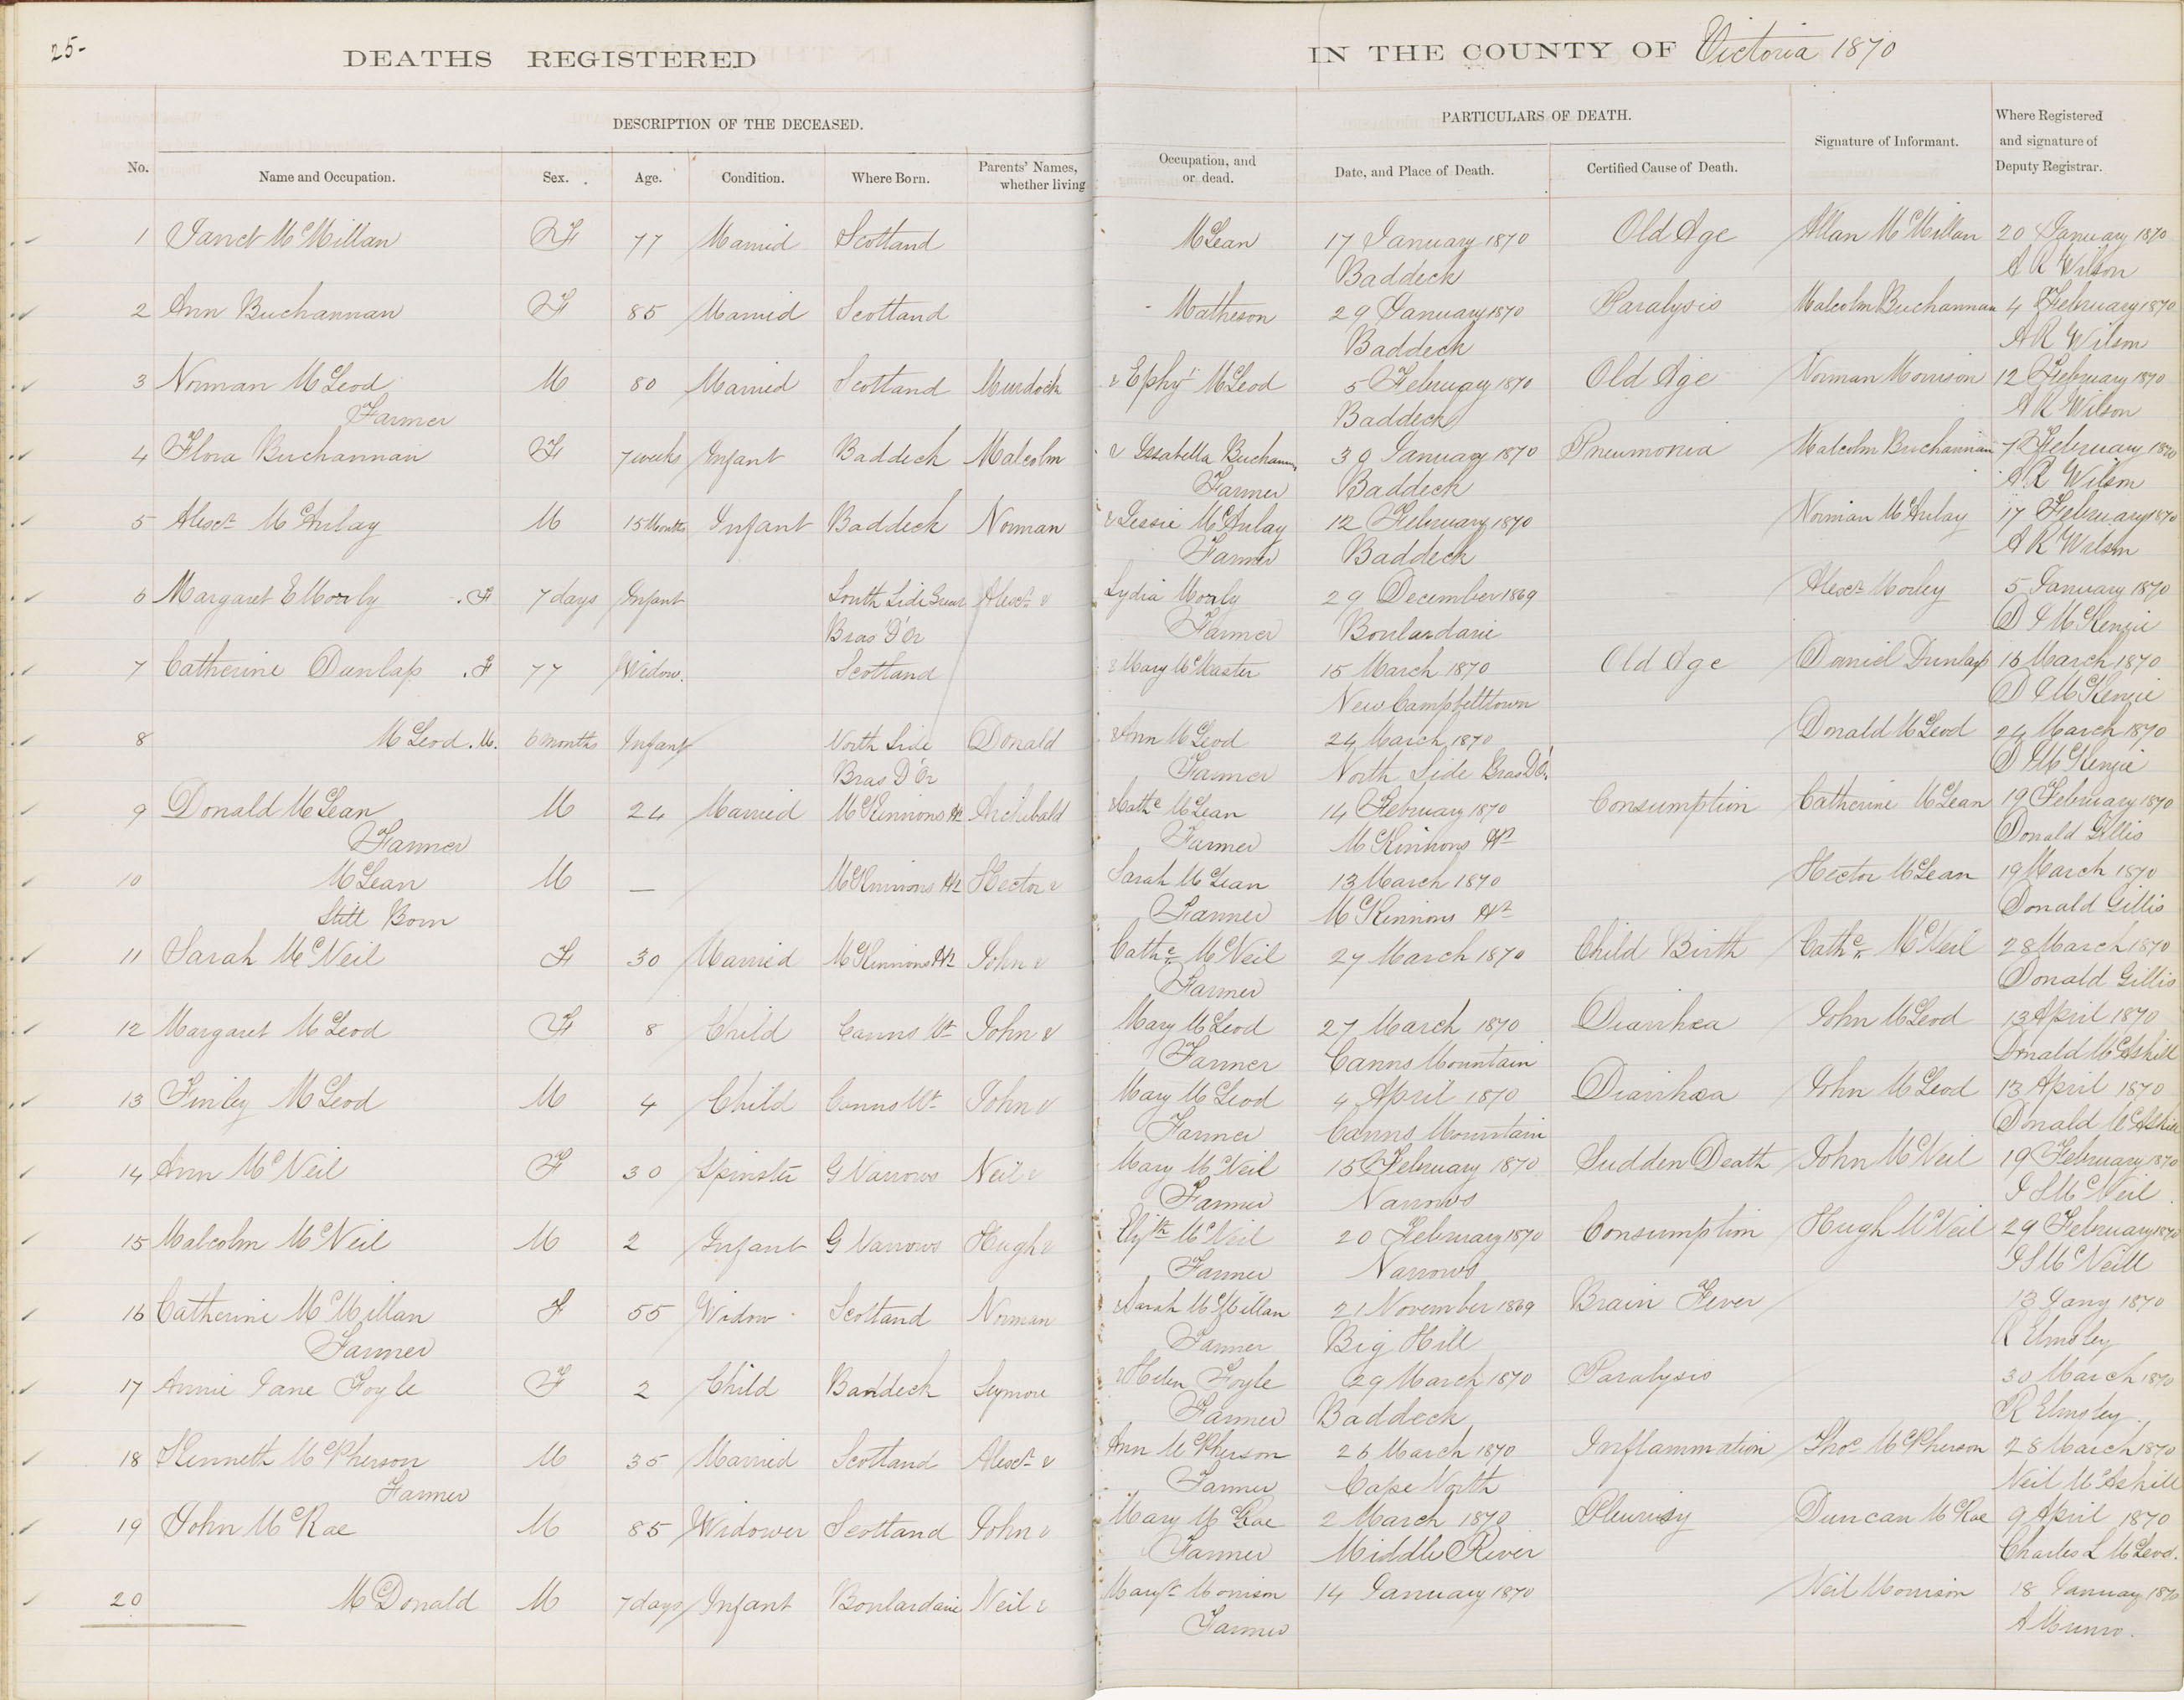 25-
DEATHS REGISTERED IN THE COUNTY OF Victoria 1870
DESCRIPTION OF THE DECEASED. PARTICULARS OF DEATH.
No. Name and Occupation. Sex. Age. Condition. Where Born. Parents' Names, whether living Occupation, and or dead. Date, and Place of Death. Certified Cause of Death. Signature of Informant. Where Registered and signature of Deputy Registrar.
1 Janet McMillan F 77 Married Scotland McLean 17 January 1870 Old Age Allan McMillan 20 January 1870
Baddeck A R Wilson
2 Ann Buchannan F 85 Married Scotland Matheson 29 January 1870 Paralysis Malcolm Buchannan 4 February 1870
Baddeck A R Wilson
3 Norman McLeod M 80 Married Scotland Murdock & Ephy McLeod 5 February 1870 Old Age Norman Morrison 12 February 1870
Farmer Baddeck A R Wilson
4 Flora Buchannan F 7 weeks Infant Baddeck Malcolm & Issabella Buchannan 30 January 1870 Pneumonia Malcolm Buchannan 7 February 1870
Farmer Baddeck A R Wilson
5 Alexr McAulay M 15 Months Infant Baddeck Norman & Jessie McAulay 12 February 1870 Norman McAulay 17 February 1870
Farmer Baddeck A R Wilson
6 Margaret E Morly F 7 days Infant South Side Great Alexr & Lydia Morly 29 December 1869 Alexr Morley 5 January 1870
Bras D'Or Farmer Boulardarie D F McKenzie
7 Catherine Dunlap F 77 Widow Scotland & Mary McMaster 15 March 1870 Old Age Daniel Dunlap 16 March 1870
New Campbelltown D F McKenzie
8 McLeod M. 6 months Infant North Side Donald & Ann McLeod 24 March 1870 Donald McLeod 24 March 1870
Bras D'Or Farmer North Side Bras D'Or D F McKenzie
9 Donald McLean M 24 Married McKinnons Hr Archibald & Cathe McLean 14 February 1870 Consumption Catherine McLean 19 February 1870
Farmer Farmer McKinnons Hr Donald Gillis
10 McLean M — McKinnons Hr Hector & Sarah McLean 13 March 1870 Hector McLean 19 March 1870
Still Born Farmer McKinnons Hr Donald Gillis
11 Sarah McNeil F 30 Married McKinnons Hr John & Cathe McNeil 27 March 1870 Child Birth Cathe McNeil 28 March 1870
Farmer Donald Gillis
12 Margaret McLeod F 8 Child Canns Mt John & Mary McLeod 27 March 1870 Diarrhœa John McLeod 13 April 1870
Farmer Canns Mountain Donald McAskill
13 Finley McLeod M 4 Child Canns Mt John & Mary McLeod 4 April 1870 Diarrhœa John McLeod 13 April 1870
Farmer Canns Mountain Donald McAskill
14 Ann McNeil F 30 Spinster G Narrows Neil & Mary McNeil 15 February 1870 Sudden Death John McNeil 19 February 1870
Farmer Narrows J S McNeil
15 Malcolm McNeil M 2 Infant G Narrows Hugh & Elizth McNeil 20 February 1870 Consumption Hugh McNeil 29 February 1870
Farmer Narrows J S McNeill
16 Catherine McMillan F 55 Widow Scotland Norman & Sarah McMillan 21 November 1869 Brain Fever 13 Jany 1870
Farmer Farmer Big Hill R Elmsley
17 Annie Jane Foyle F 2 Child Baddeck Seymore & Helen Foyle 29 March 1870 Paralysis 30 March 1870
Farmer Baddeck R Elmsley
18 Kenneth McPherson M 35 Married Scotland Alexr & Ann McPherson 26 March 1870 Inflammation Thos McPherson 28 March 1870
Farmer Farmer Cape North Neil McAskill
19 John McRae M 85 Widower Scotland John & Mary McRae 2 March 1870 Pleurisy Duncan McRae 9 April 1870
Farmer Middle River Charles L McLeod.
20 McDonald M 7 days Infant Boulardarie Neil & Margt Morrison 14 January 1870 Neil Morrison 18 January 1870
Farmer A Munro.